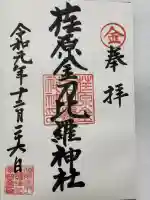 奉拝
金
荏原金刀比羅神社
令和元年十二月二十六日